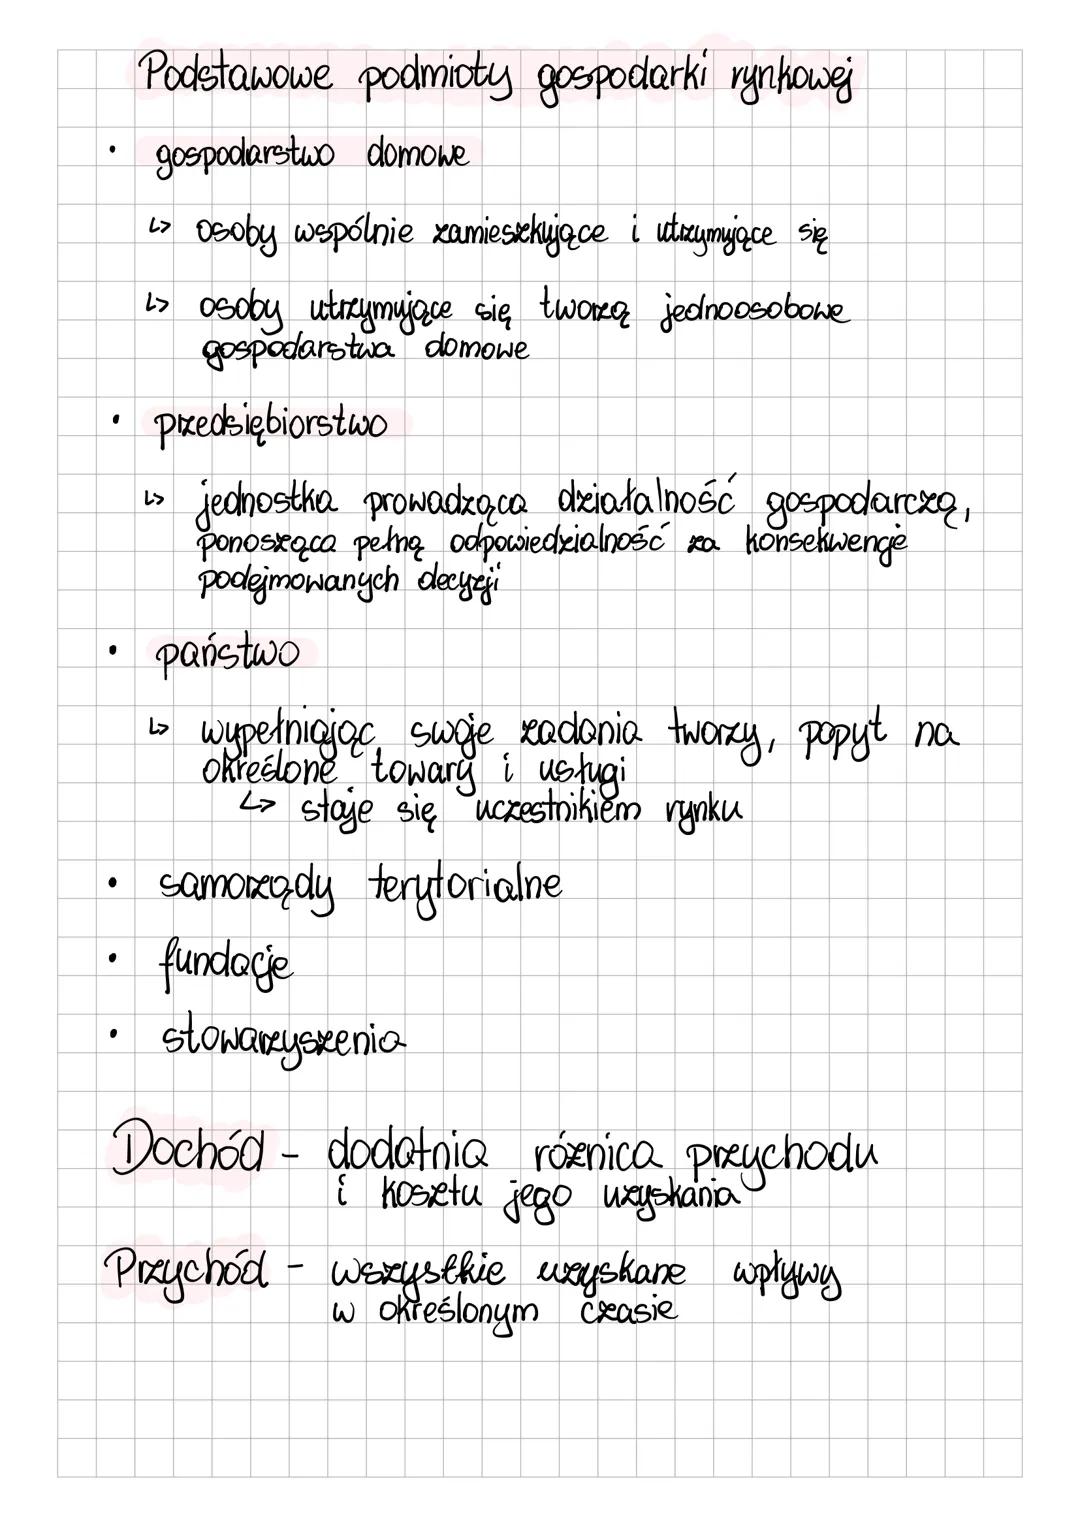 Podstawowe podmioty gospodarki rynkowej
• gospodarstwo domowe
↳ osoby wspólnie zamieszkujące i utrzymujące się
↳ osoby utrzymujące się tworzą jednoosobowe
gospodarstwa domowe
• przedsiębiorstwo
↳ jednostka prowadząca działalność gospodarczą,
ponosząca pełną odpowiedzialność za konsekwencje
podejmowanych decyzji
• państwo
↳ wypełniając swoje zadania tworzy, popyt na
określone towary i usługi
↳ staje się uczestnikiem rynku
• samorządy terytorialne
• fundacje
• stowarzyszenia
Dochód - dodatnia różnica przychodu
i kosztu jego uzyskania
Przychód - wszystkie uzyskane wpływy
w określonym czasie